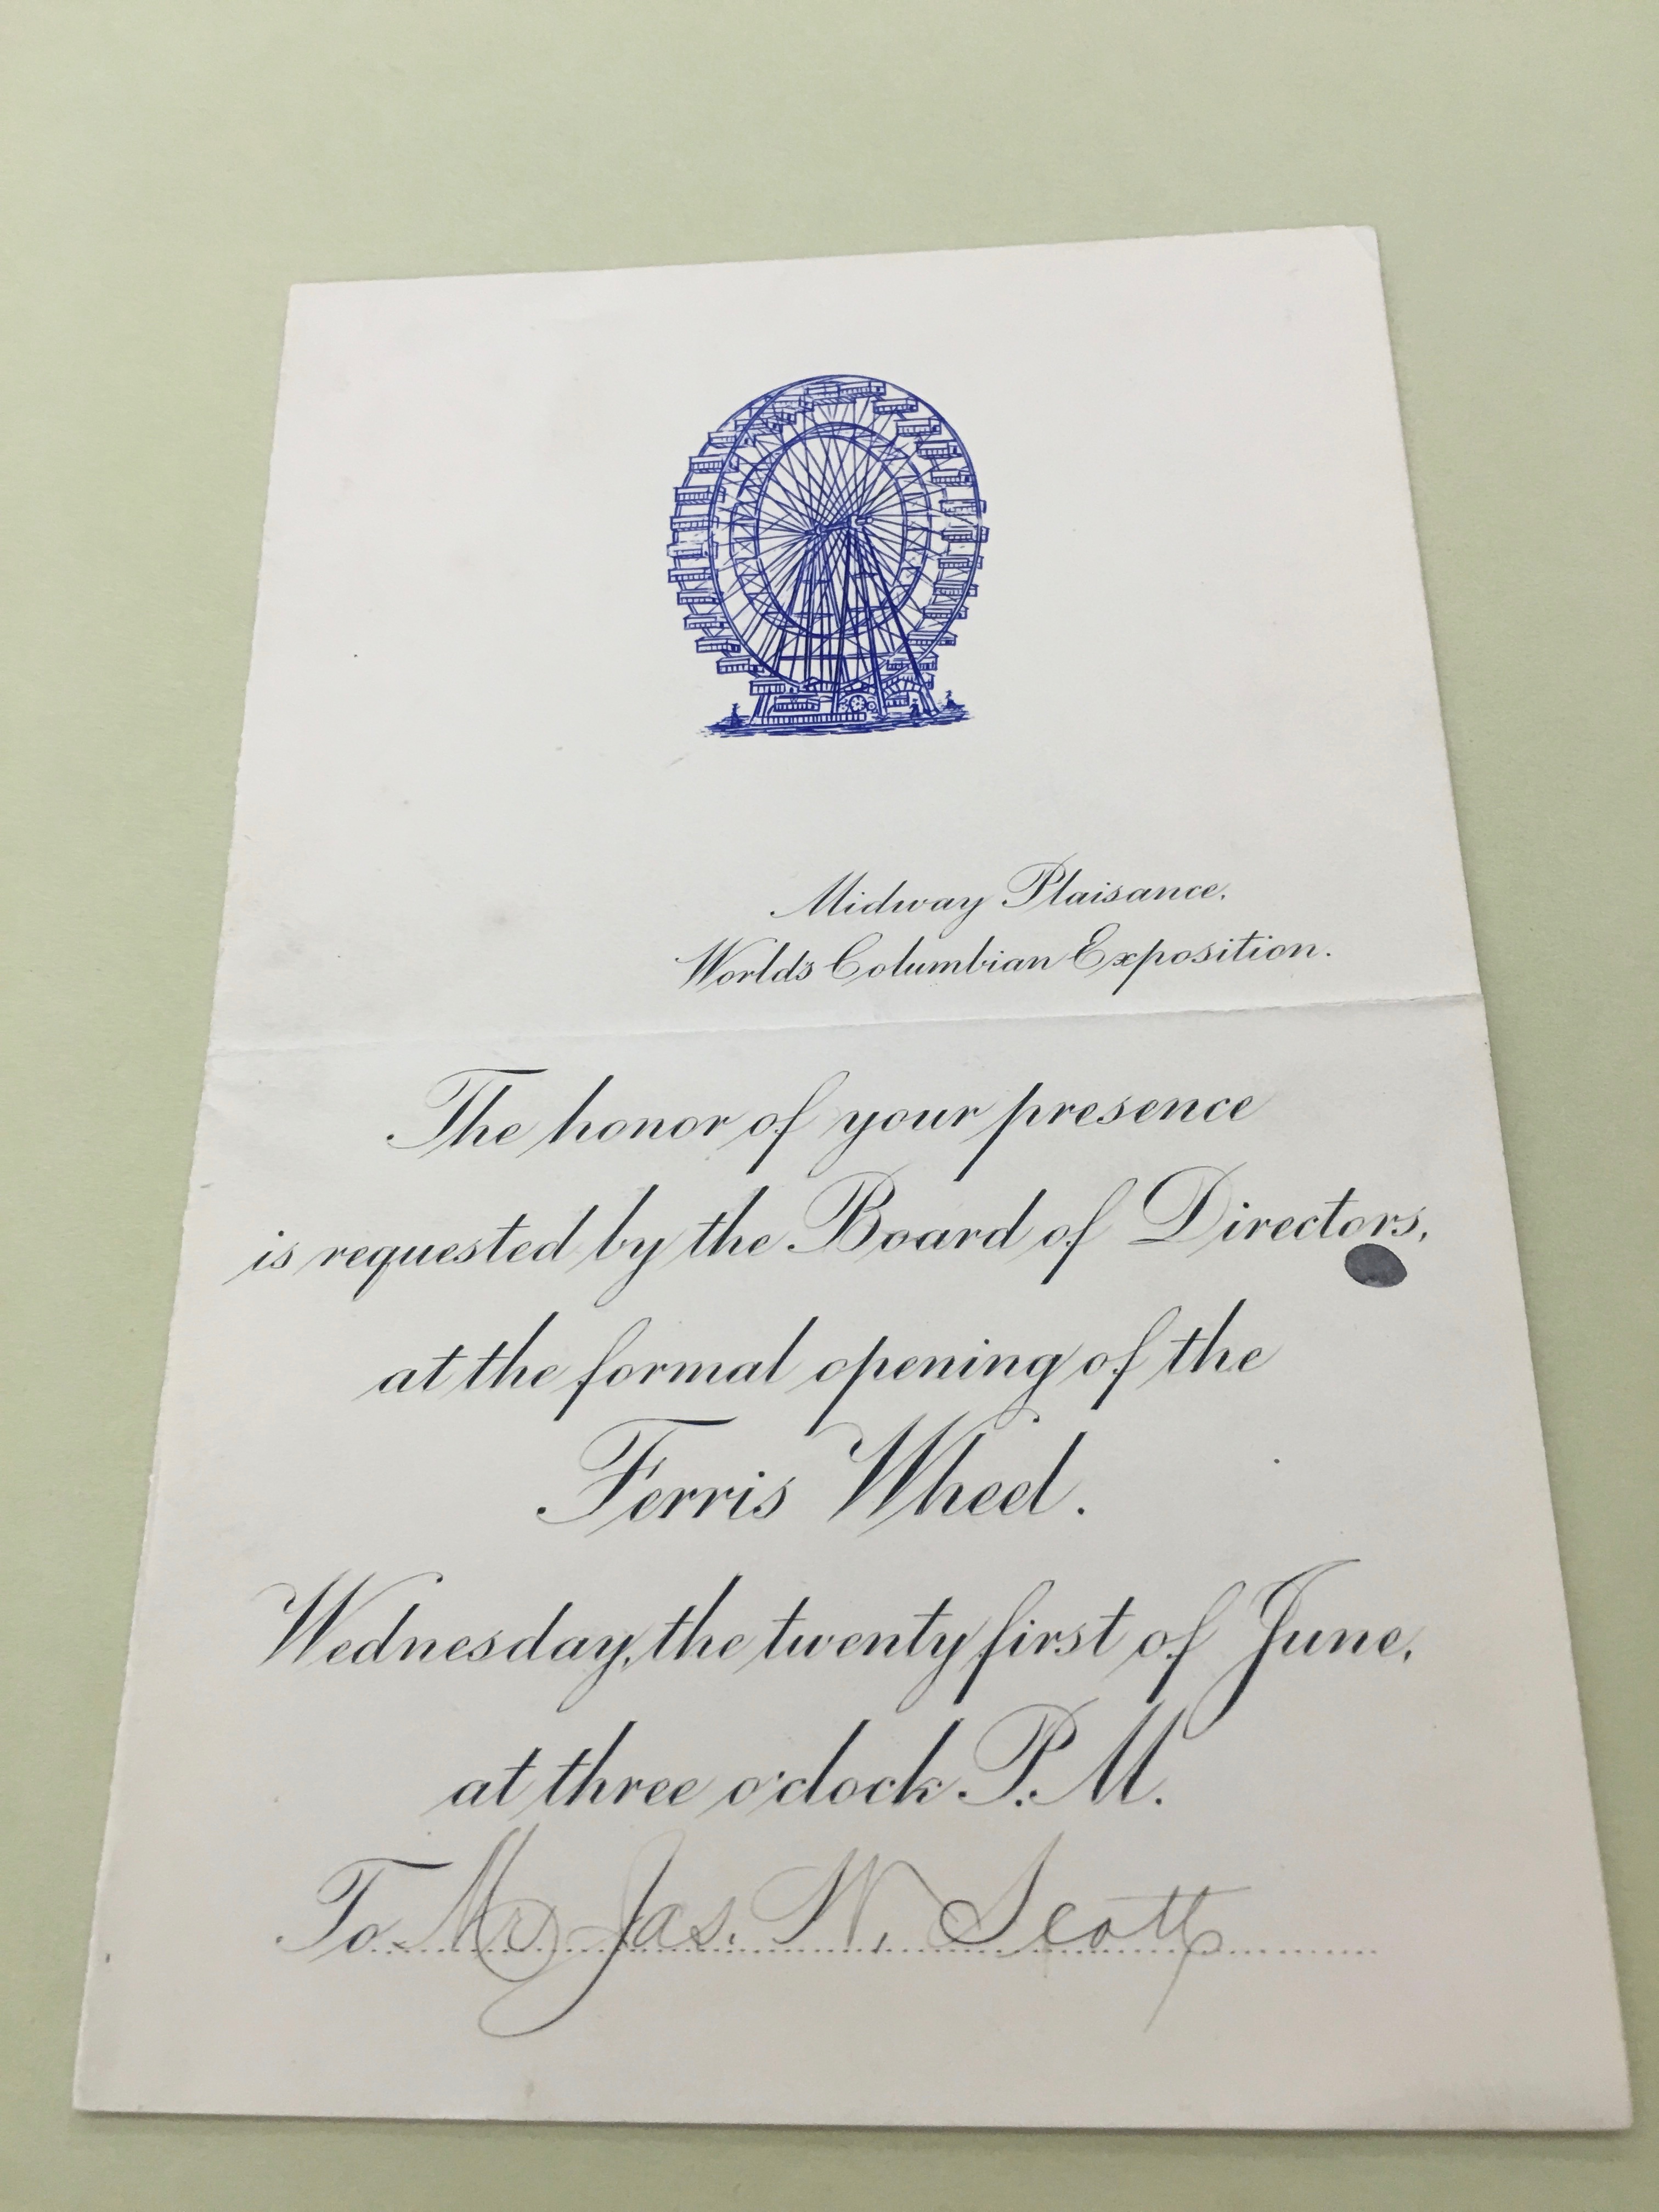 Midway Plaisance.
World's Columbian Exposition.
The honor of your presence
is requested by the Board of Directors,
at the formal opening of the
Ferris Wheel.
Wednesday, the twenty first of June,
at three o'clock P.M.
To Mr Jas. W. Scott